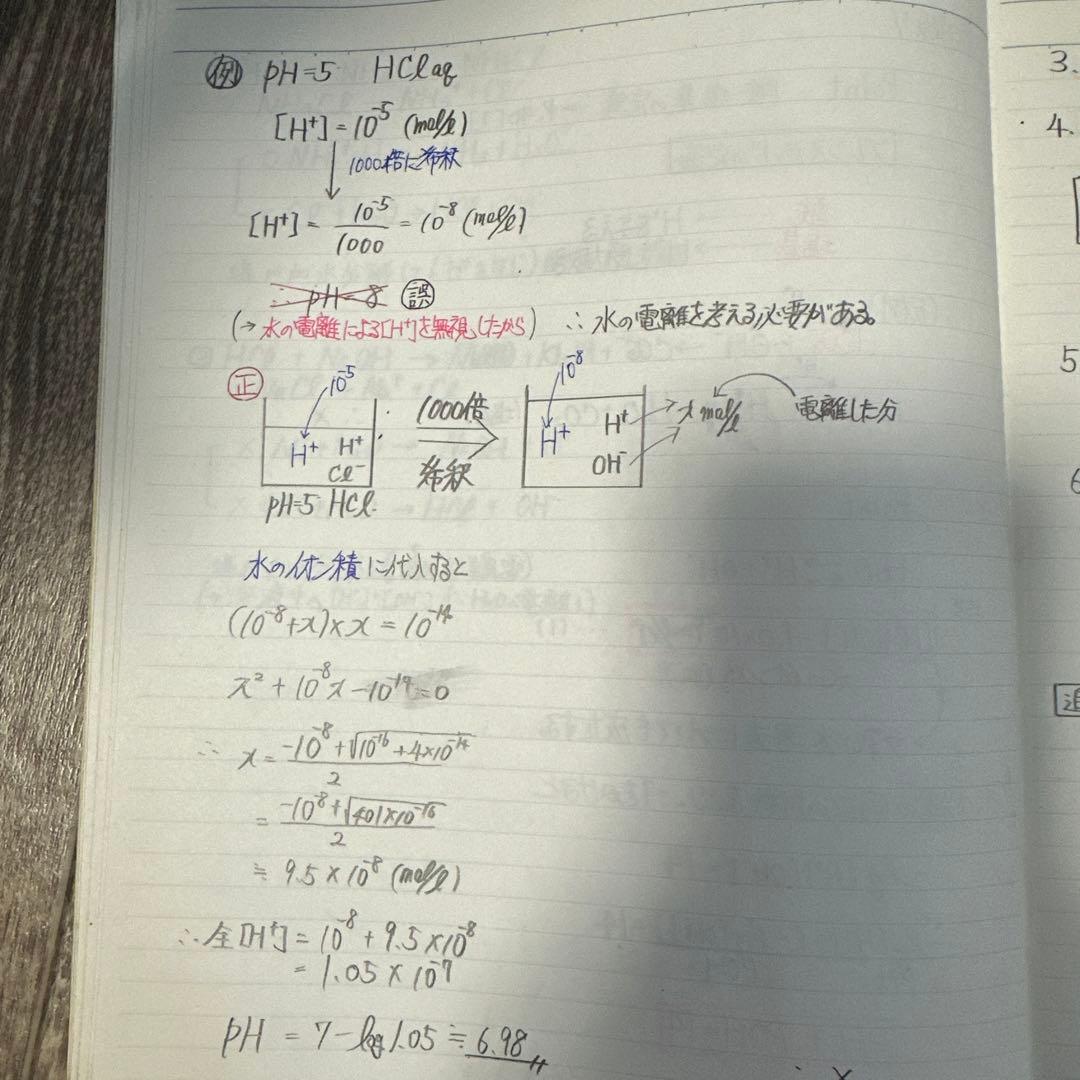 例 pH=5 HClaq
[H⁺] = 10⁻⁵ (mol/l)
1000倍に希釈
[H⁺] = 10⁻⁵/1000 = 10⁻⁸ (mol/l)
∴ pH=8 誤
(→ 水の電離による[H⁺]を無視したから) ∴ 水の電離を考える必要がある。
正 10⁻⁵ 10⁻⁸
1000倍 希釈
H⁺ H⁺ Cl⁻
H⁺ H⁺ OH⁻ x mol/l 電離した分
pH=5 HCl.
水のイオン積に代入すると
(10⁻⁸+x)×x = 10⁻¹⁴
x² + 10⁻⁸x - 10⁻¹⁴ = 0
∴ x = (-10⁻⁸+√(10⁻¹⁶+4×10⁻¹⁴))/2
= (-10⁻⁸+√(401×10⁻¹⁶))/2
≒ 9.5×10⁻⁸ (mol/l)
∴ 全[H⁺] = 10⁻⁸ + 9.5×10⁻⁸
= 1.05×10⁻⁷
pH = 7-log1.05 ≒ 6.98
3.
4.
5
6